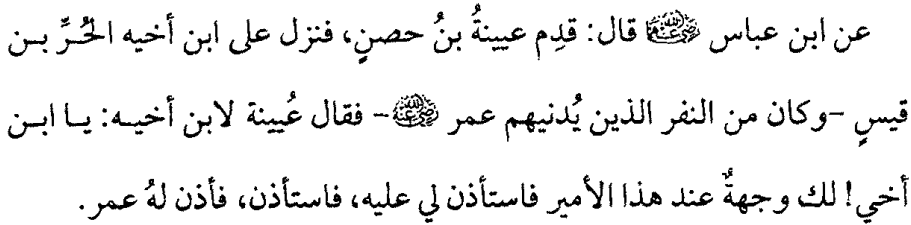 عن ابن عباس رضي الله عنهما قال: قدِم عيينةُ بنُ حصنٍ، فنزل على ابن أخيه الحُرِّ بن
قيسٍ -وكان من النفر الذين يُدنيهم عمر رضي الله عنه- فقال عُيينة لابن أخيه: يا ابن
أخي! لك وجهةٌ عند هذا الأمير فاستأذن لي عليه، فاستأذن، فأذن لهُ عمر.